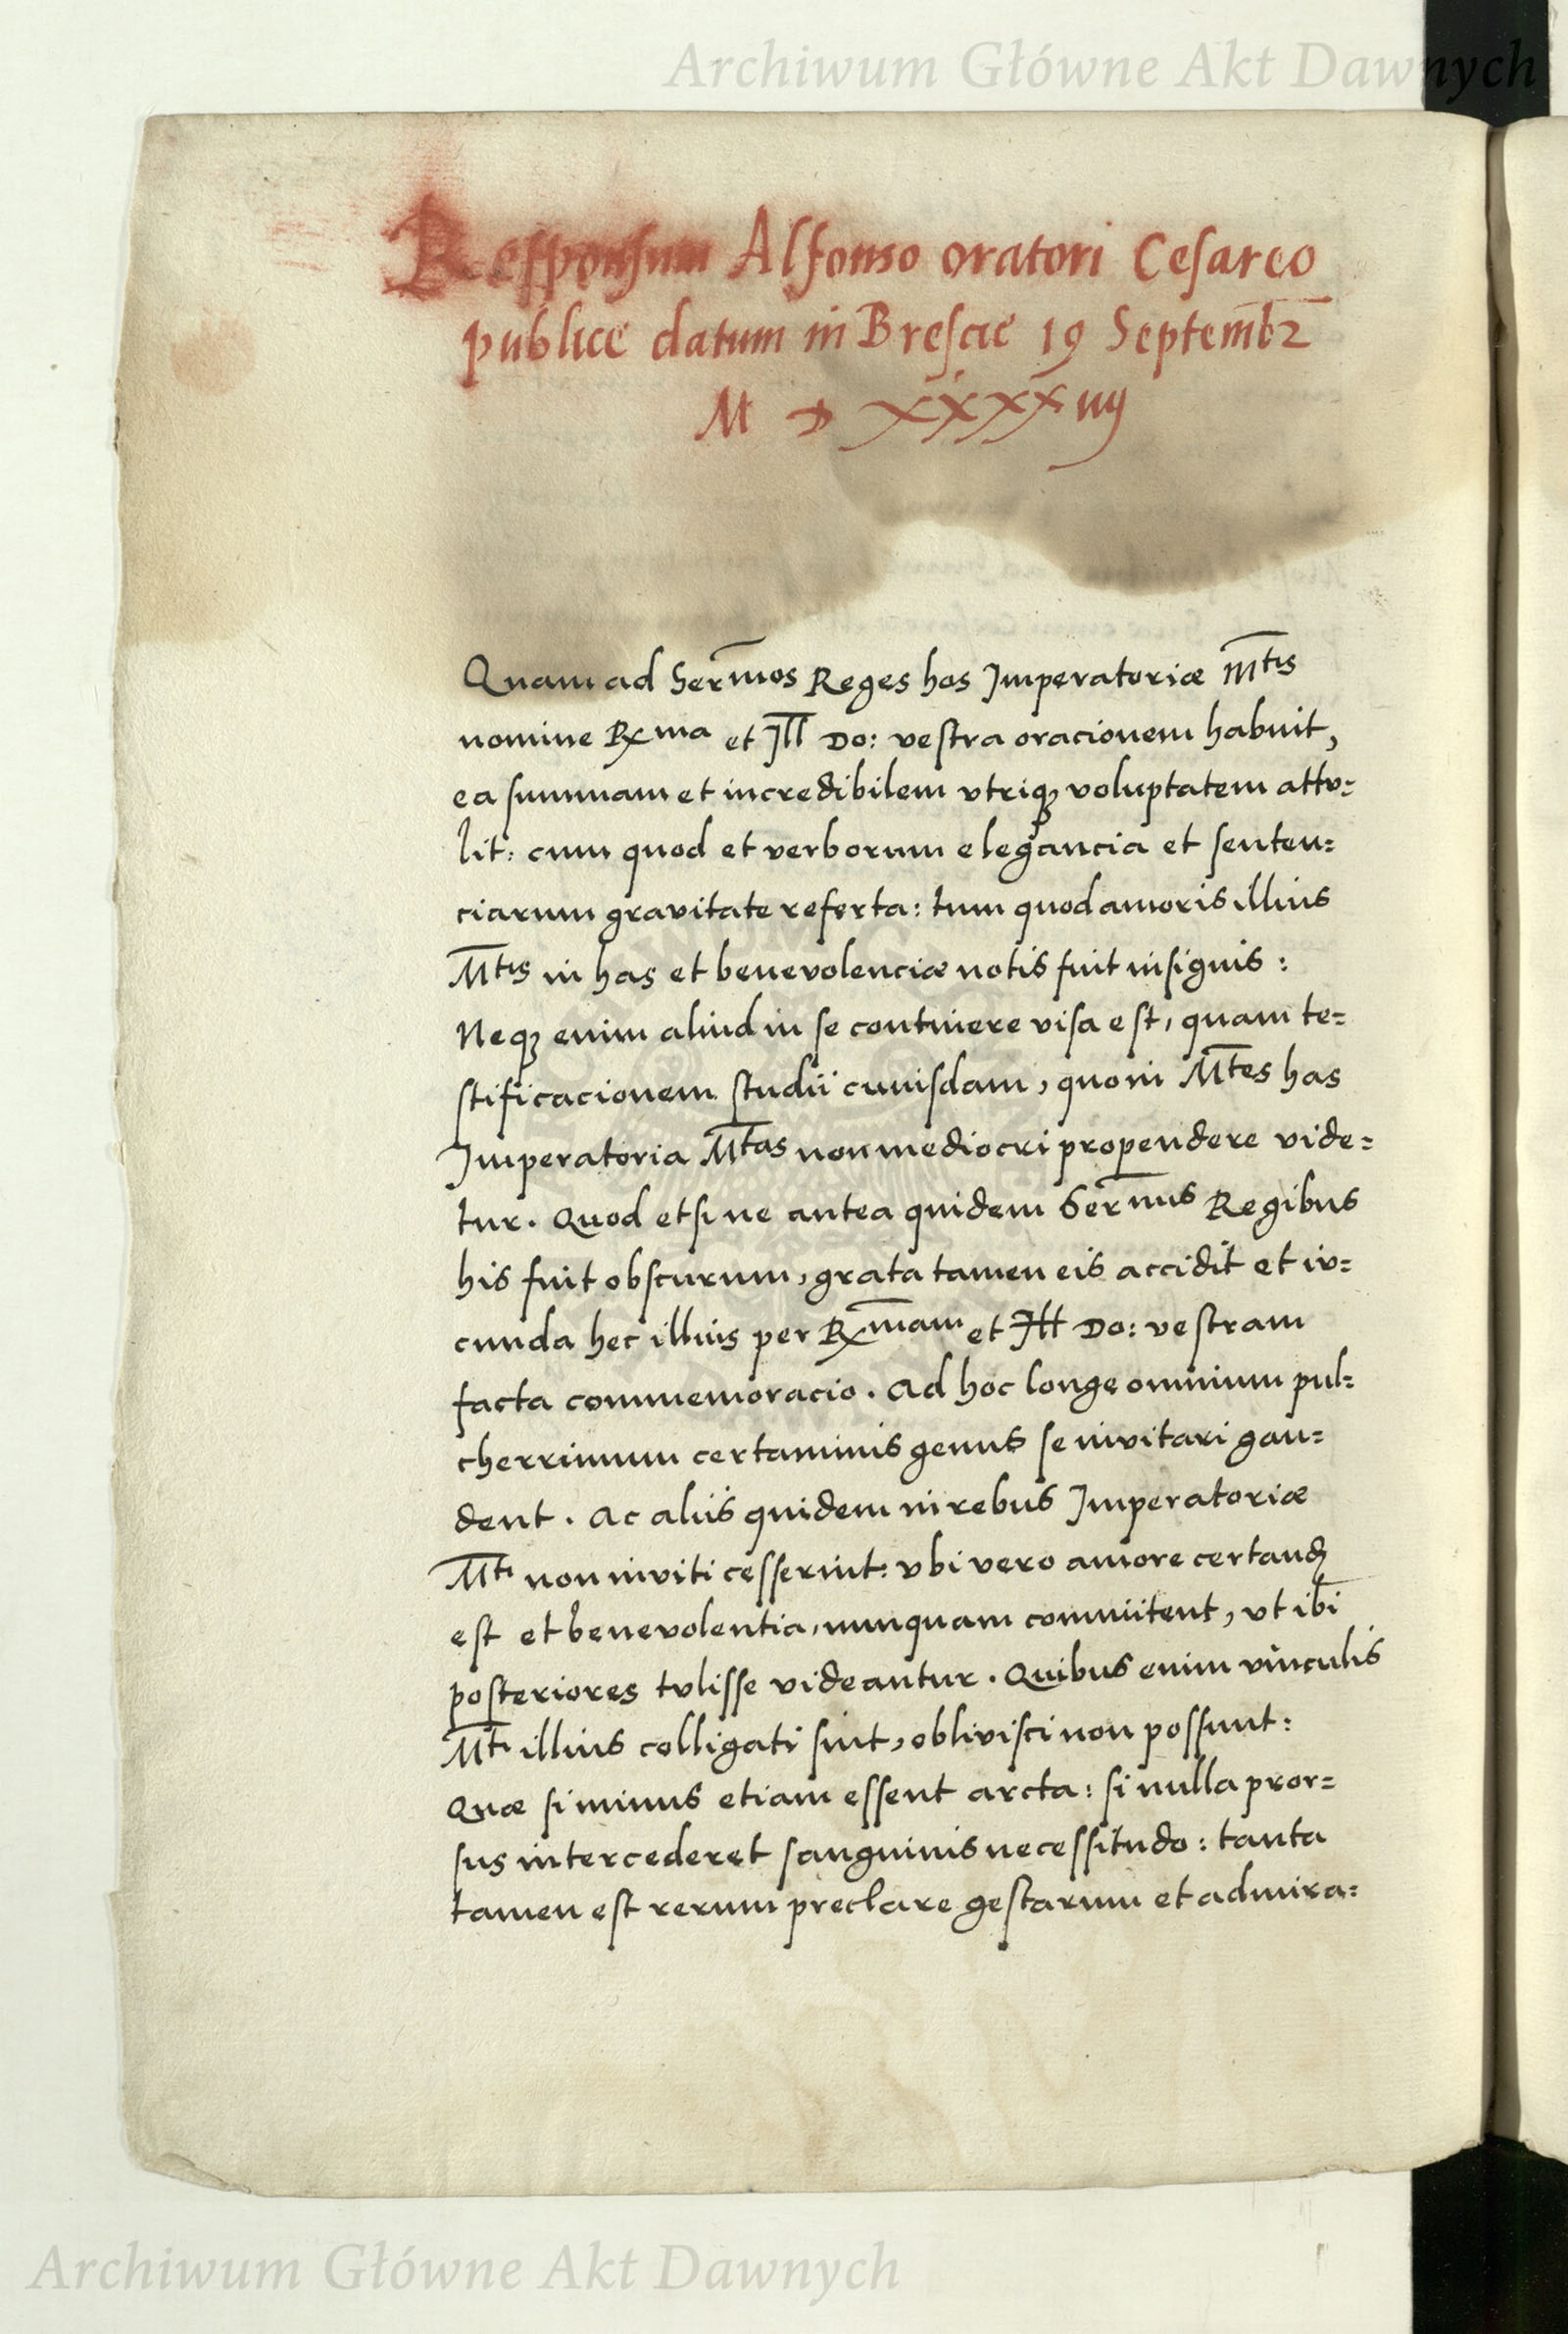 Archiwum Główne Akt Dawnych
Responsum Alfonso oratori Cesareo
publice datum in Brescie 19 Septembr
M D XXXXiiij
Quam ad Sermos Reges hos Imperatoriæ Mtis
nomine Rxma et Ill Do: vestra oracionem habuit,
ea summam et incredibilem vtriqȝ voluptatem attv=
lit: cum quod et verborum elegancia et senten=
ciarum gravitate referta: tum quod amoris illius
Mtis in has et benevolenciæ notis fuit insignis:
Neqȝ enim aliud in se continere visa est, quam te=
stificacionem studii cuiusdam, quo in Mtes has
Imperatoria Mtas non mediocri propendere vide=
tur. Quod etsi ne antea quidem Sermis Regibus
his fuit obscurum, grata tamen eis accidit et iv=
cunda hec illius per Rxmam et Ill Do: vestram
facta commemoracio. Ad hoc longe omnium pul=
cherrimum certaminis genus se invitari gau=
dent. Ac aliis quidem in rebus Imperatoriæ
Mti non inviti cesserint: vbi vero amore certand
est et benevolentia, nunquam committent, vt ibi
posteriores tvlisse videantur. Quibus enim vinculis
Mti illius colligati sint, oblivisci non possunt:
Quæ si minus etiam essent arcta: si nulla pror=
sus intercederet sanguinis necessitudo: tanta
tamen est rerum preclare gestarum et admira=
Archiwum Główne Akt Dawnych